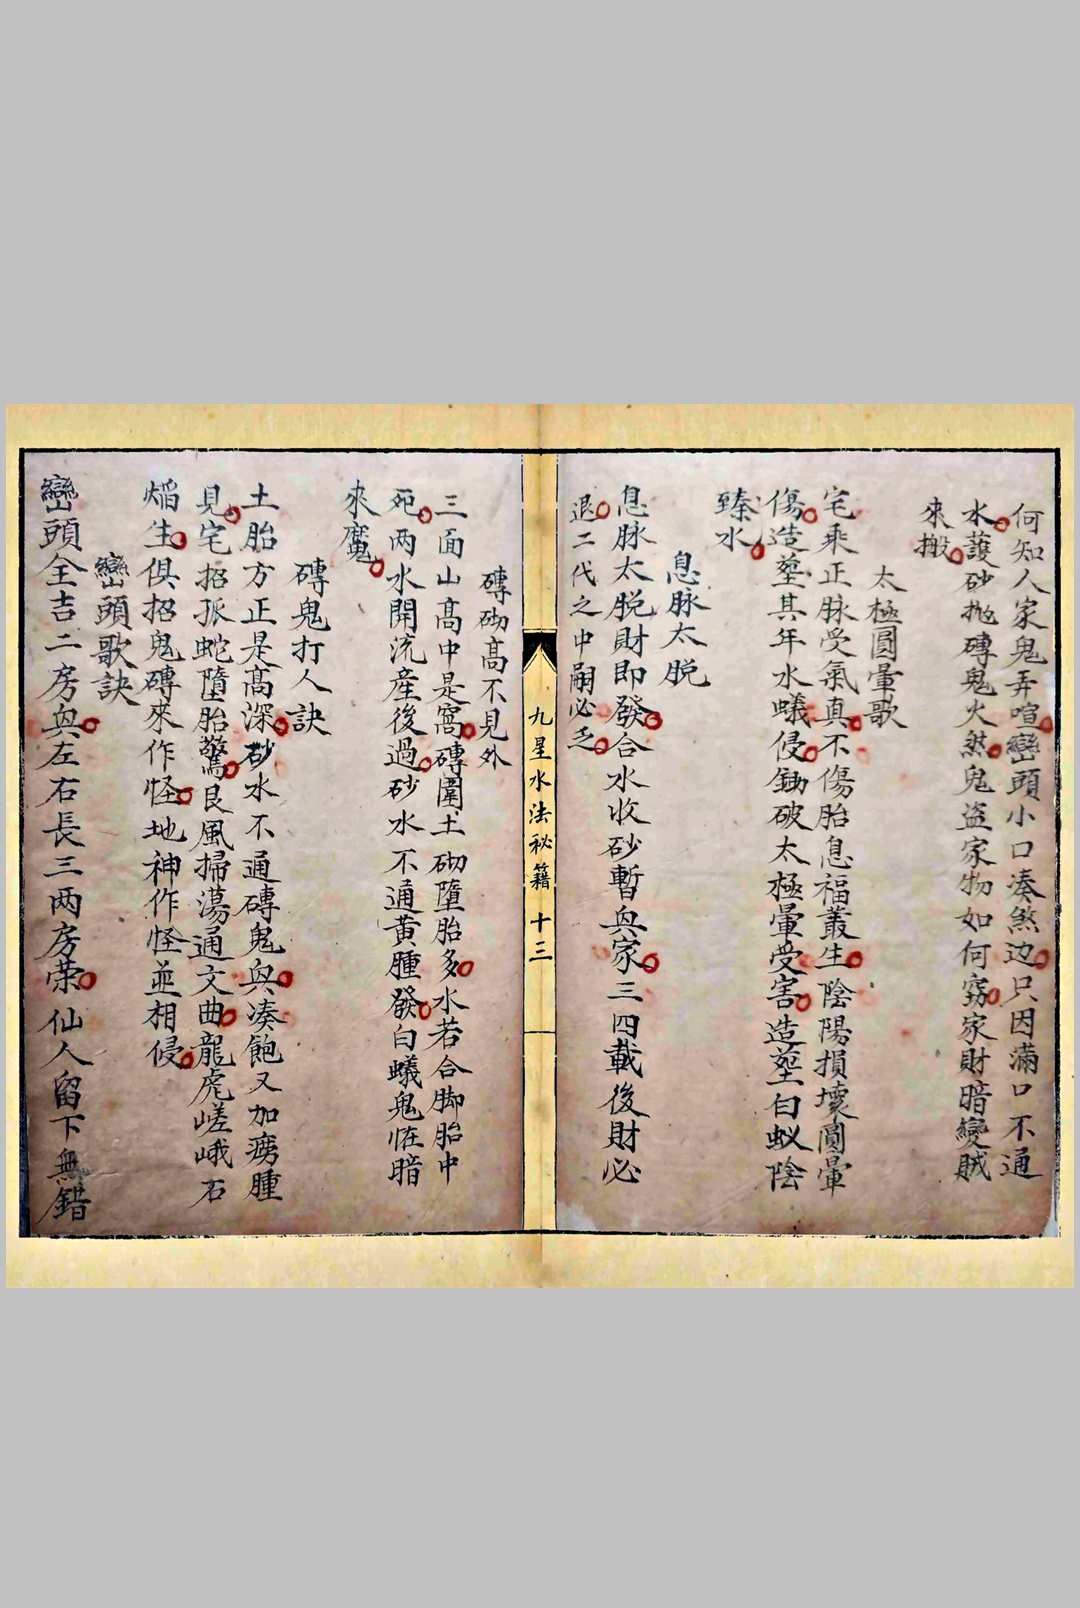 何知人家鬼弄喧巒頭小口凑煞边只因滿口不通
水護砂抛磚鬼火煞鬼盜家物如何竊家財暗變賊
來搬
太極圓暈歌
宅乘正脉受氣真不傷胎息福叢生陰陽損壞圓暈
傷造塟其年水蟻侵鋤破太極暈受害造塟白蚁陰
臻水
息脉太脱
息脉太脱財即發合水收砂暫與家三四載後財必
退二代之中嗣必乏
九星水法秘籍 十三
磚砌高不見外
三面山高中是窩磚圍土砌墮胎多水若合脚胎中
死两水開流産後過砂水不通黄腫發白蟻鬼怪暗
來魔
磚鬼打人訣
土胎方正是高深砂水不通磚鬼與凑飽又加癆腫
見宅招孤蛇墮胎驚艮風掃蕩通文曲龍虎嵯峨石
熖生俱招鬼磚來作怪地神作怪並相侵
巒頭歌訣
巒頭全吉二房與左右長三两房荣仙人留下無錯